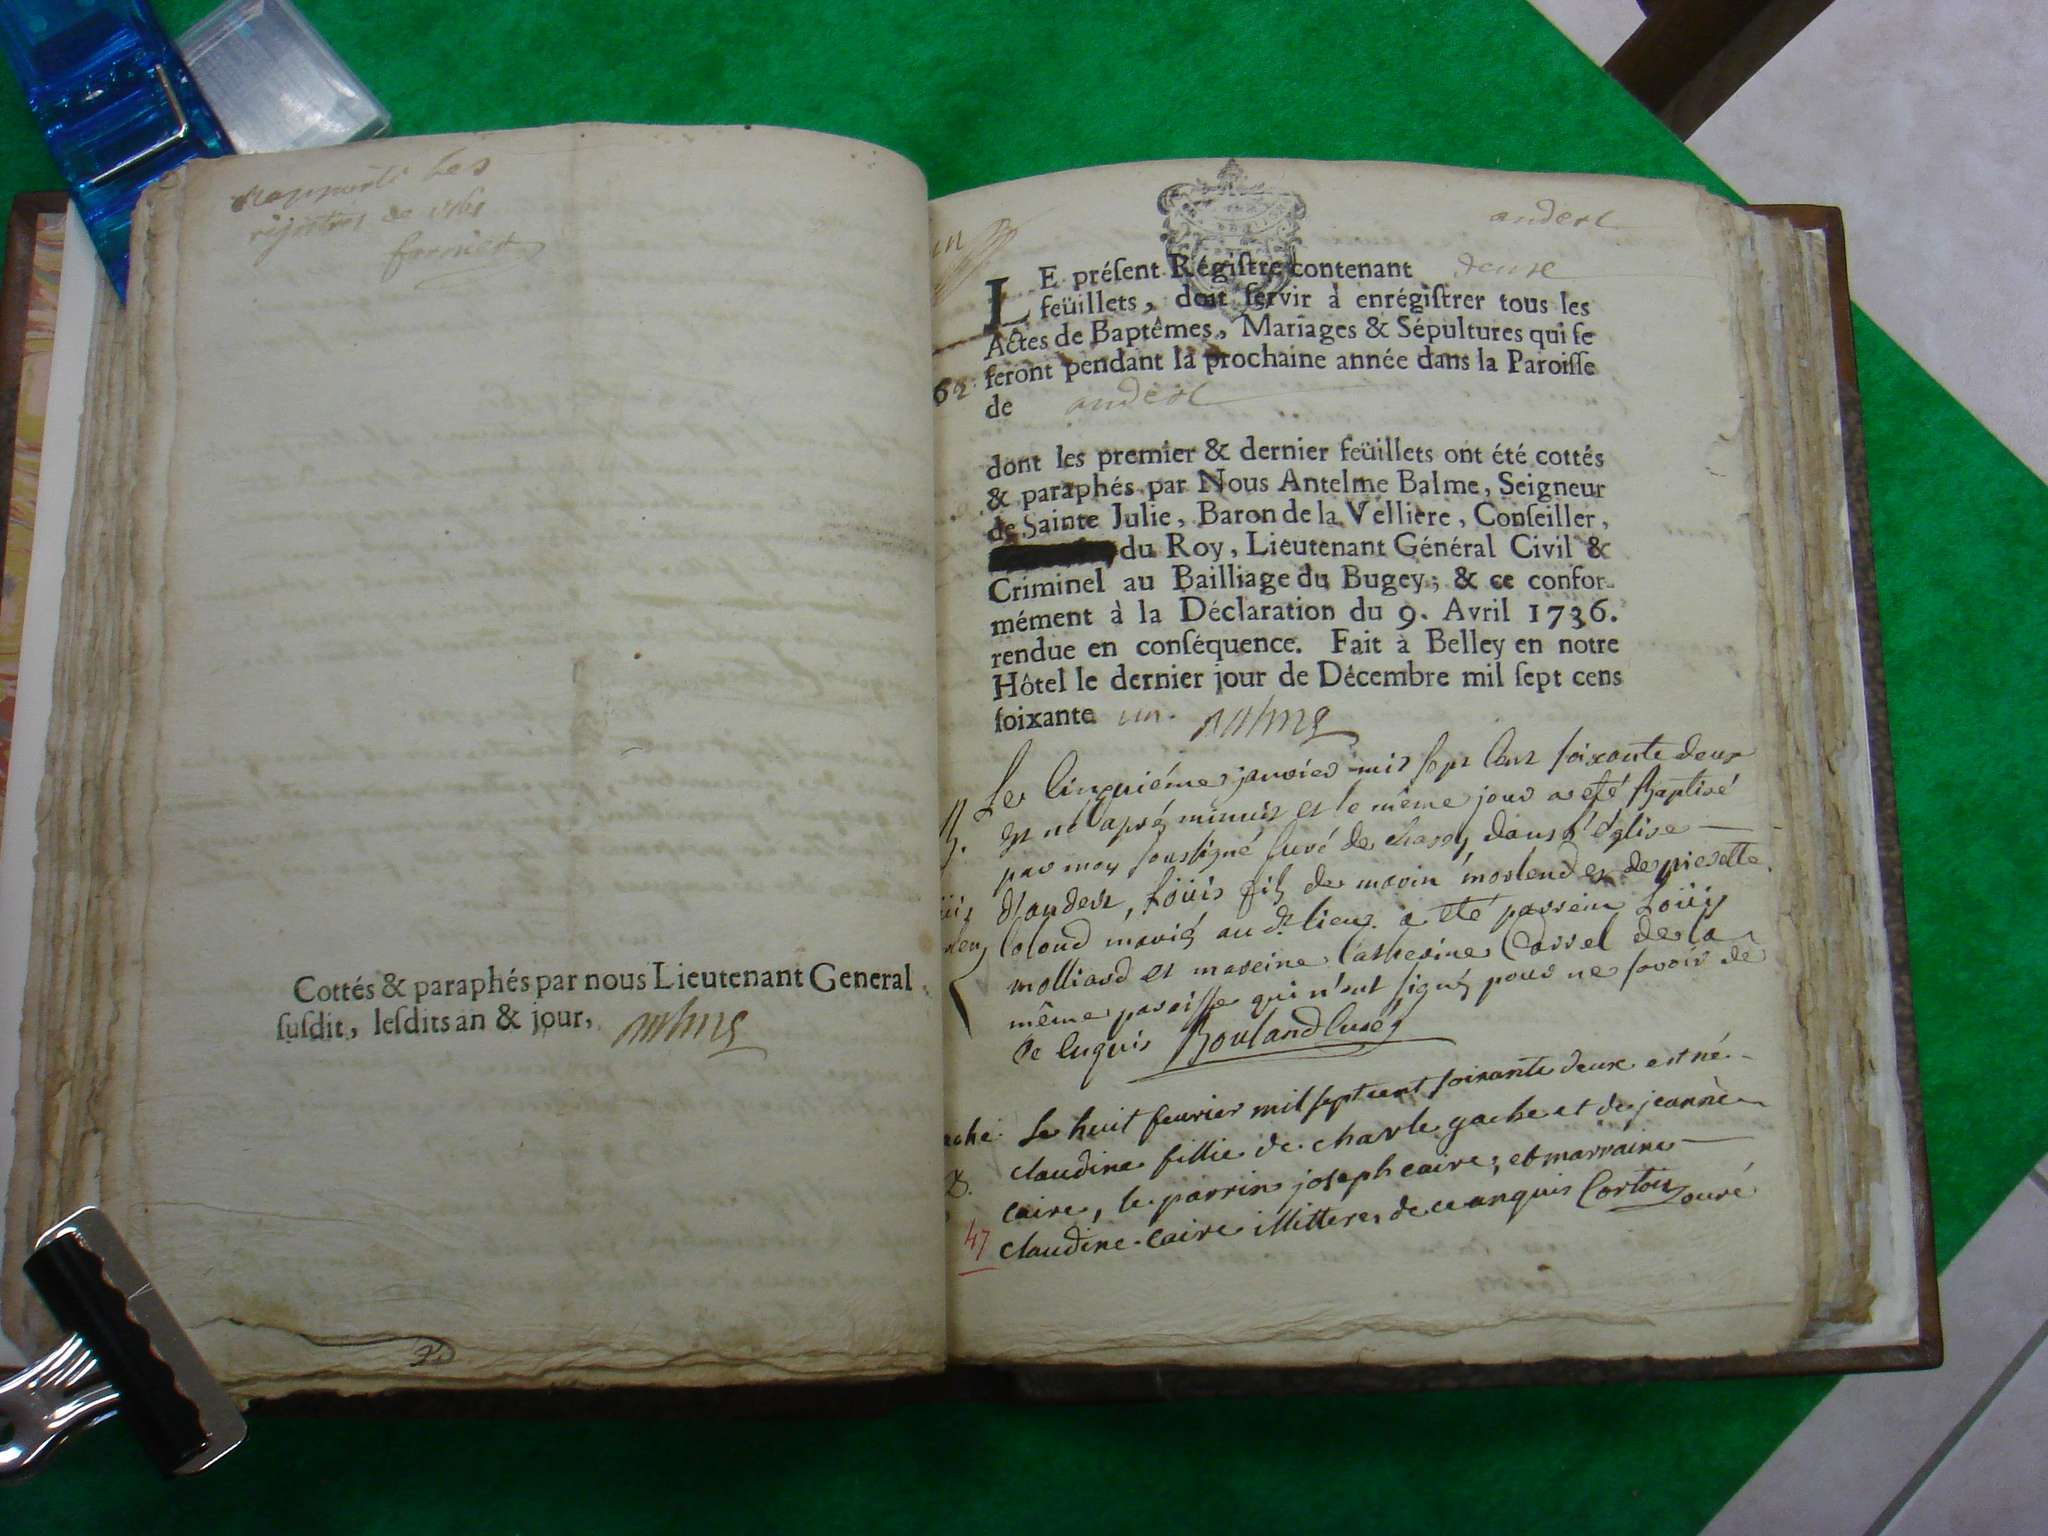 rapporté les
rejistres de 1761
fornier
Cottés & paraphés par nous Lieutenant General
ſuſdit, leſdits an & jour,
andert
LE préſent Régiſtre contenant deux
feüillets, doit ſervir à enrégiſtrer tous les
Actes de Baptêmes, Mariages & Sépultures qui ſe
feront pendant la prochaine année dans la Paroiſſe
62
de andert
dont les premier & dernier feüillets ont été cottés
& paraphés par Nous Antelme Balme, Seigneur
de Sainte Julie, Baron de la Velliere, Conſeiller,
du Roy, Lieutenant Général Civil &
Criminel au Bailliage du Bugey; & ce confor-
mément à la Déclaration du 9. Avril 1736.
rendue en conſéquence. Fait à Belley en notre
Hôtel le dernier jour de Décembre mil ſept cens
ſoixante un.
Le Cinquiéme janvier mil sept Cent soixante deux
est né aprés minuit et le même jour a eté Baptisé
par moy soussigné Curé de dans l'église
d'andert, Loüis fils de marin et de pierette
mariés au dt. lieu. a eté parrein Loüis
molliard et mareine Catherine de la
même paroisse qui n'ont signés pour ne savoir de
ce Enquis Rouland Curé
ache le huit feurier mil sept cent soixante deux est né
B. claudine fillie de charle gache et de jeanne
caire, le parrin joseph caire, et marraine
47 claudine caire illitteres de ce anquis Cortois curé